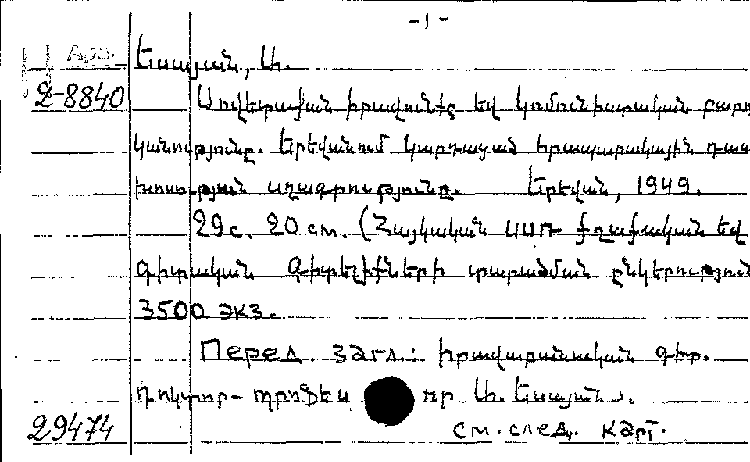 - 1 -
Եսայան, Ա.
2-8840 Սովետական իրավունքը եվ կոմունիստական բարո
կանությունը. Երեվանում կարդացած հրապարակային դաս
խոսության սղագրությունը. Երեվան, 1949.
29с. 20 см. (Հայկական ՍՍՌ քղաքական եվ
գիտական գիտելիքների տարածման ընկերություն
3500 экз.
Перед. загл.: իրավաբանական գիտ.
դոկտոր - պրոֆես որ Ա. Եսայան.
29474 см. след. карт.